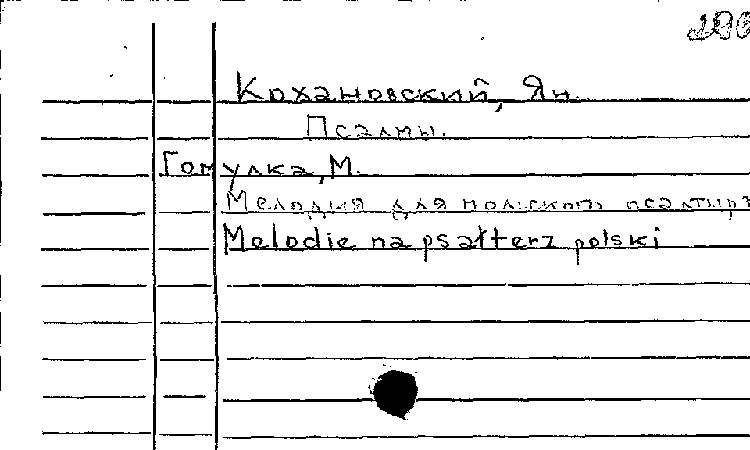 Кохановский, Ян.
Псалмы.
Гомулка, М.
Мелодия для польского псалтыря
Melodie na psałterz polski